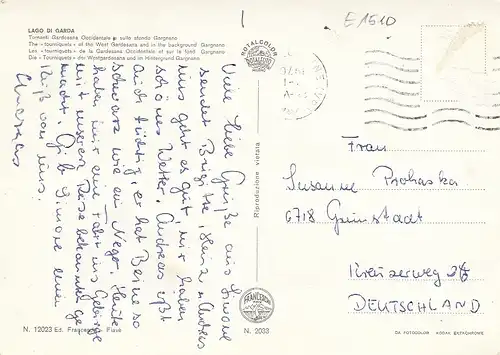 LAGO DI GARDA
Tornanti Gardesana Occidentale e sullo sfondo Gargnano
The «tourniquets» of the West Gardesana and in the background Gargnano
Les «tourniquets» de la Gardesana Occidentale et sur le fond Gargnano
Die «Tourniquets» der Westgardesana und im Hintergrund Gargnano
Viele liebe Grüße aus Limone
sendet Brigitte, Heinz u Andreas
uns geht es gut, wir haben
schönes Wetter. Andreas ißt
auch tüchtig, er hat Beine so
schwarz wie ein Neger. Heute
haben wir eine Fahrt ins Gebirge
mit unseren Reise bekannte ge
macht. Gib Simone einen
Kuß von uns.
Andreas
ROTALCOLOR
Riproduzione vietata
N. 2033
N. 12023 Ed. Francesco
E 1510
Frau
Susanne Prohaska
6718 Grünstadt
Kreuzerweg
DEUTSCHLAND
DA FOTOCOLOR KODAK EKTACHROME